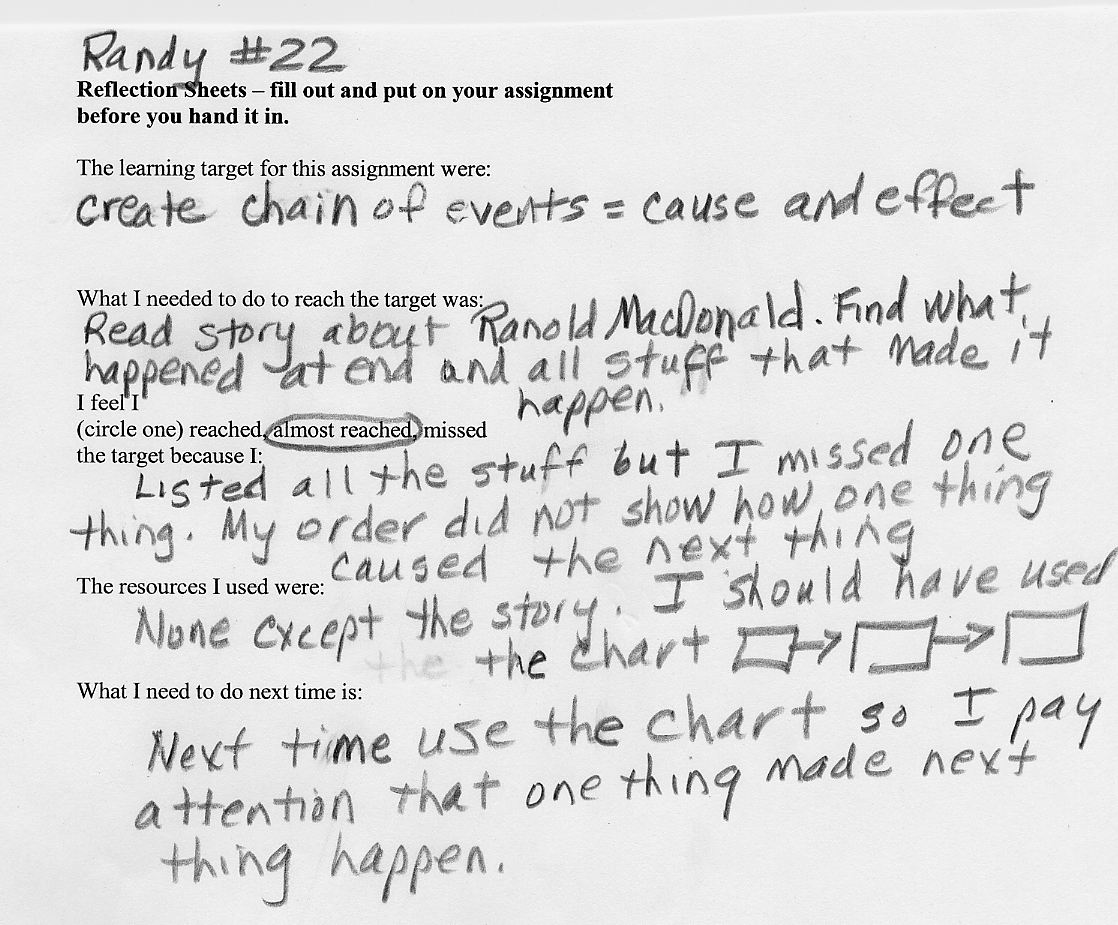 Randy #22
Reflection Sheets – fill out and put on your assignment
before you hand it in.
The learning target for this assignment were:
create chain of events = cause and effect
What I needed to do to reach the target was:
Read story about Ranold MacDonald. Find what
happened at end and all stuff that made it
happen.
I feel I
(circle one) reached, almost reached, missed
the target because I:
Listed all the stuff but I missed one
thing. My order did not show how one thing
caused the next thing
The resources I used were:
None except the story. I should have used
the the chart
What I need to do next time is:
Next time use the chart so I pay
attention that one thing made next
thing happen.